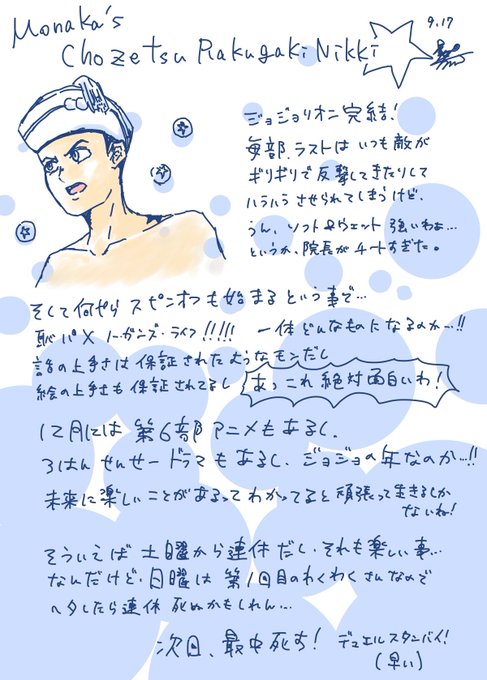 Monaka's
Chozetsu Rakugaki Nikki
9.17
ジョジョリオン完結!
毎部、ラストはいつも敵が
ギリギリで反撃してきたりして
ハラハラさせられてしまうけど、
うん、ソフト&ウェット強いわぁ…
というか、院長がチートすぎた。
そして何やらスピンオフも始まるという事で…
恥パ×ノーガンズ・ライフ!!!!! 一体どんなものになるのか…!!
話の上手さは保証されたようなモンだし
絵の上手さも保証されてるし
あっこれ絶対面白いわ!
12月には第6部アニメもあるし、
ろはんせんせードラマもあるし、ジョジョの年なのか…!!
未来に楽しいことがあるってわかってると頑張って生きるしか
ないね!
そういえば土曜から連休だし、それも楽しい事…
なんだけど、日曜は第1回目のわくわくさいなので
ヘタしたら連休死ぬかもしれん…
次回、最中死す! デュエルスタンバイ!
(早い)